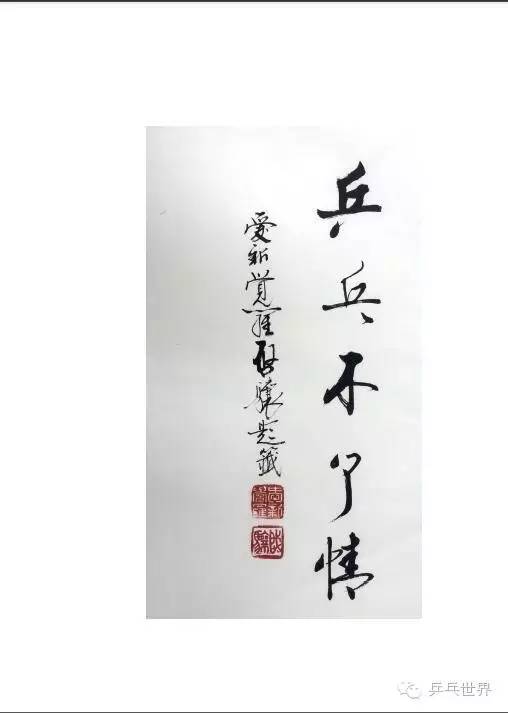 乒乓不了情
愛新覺羅启驤題籤
乒乓世界